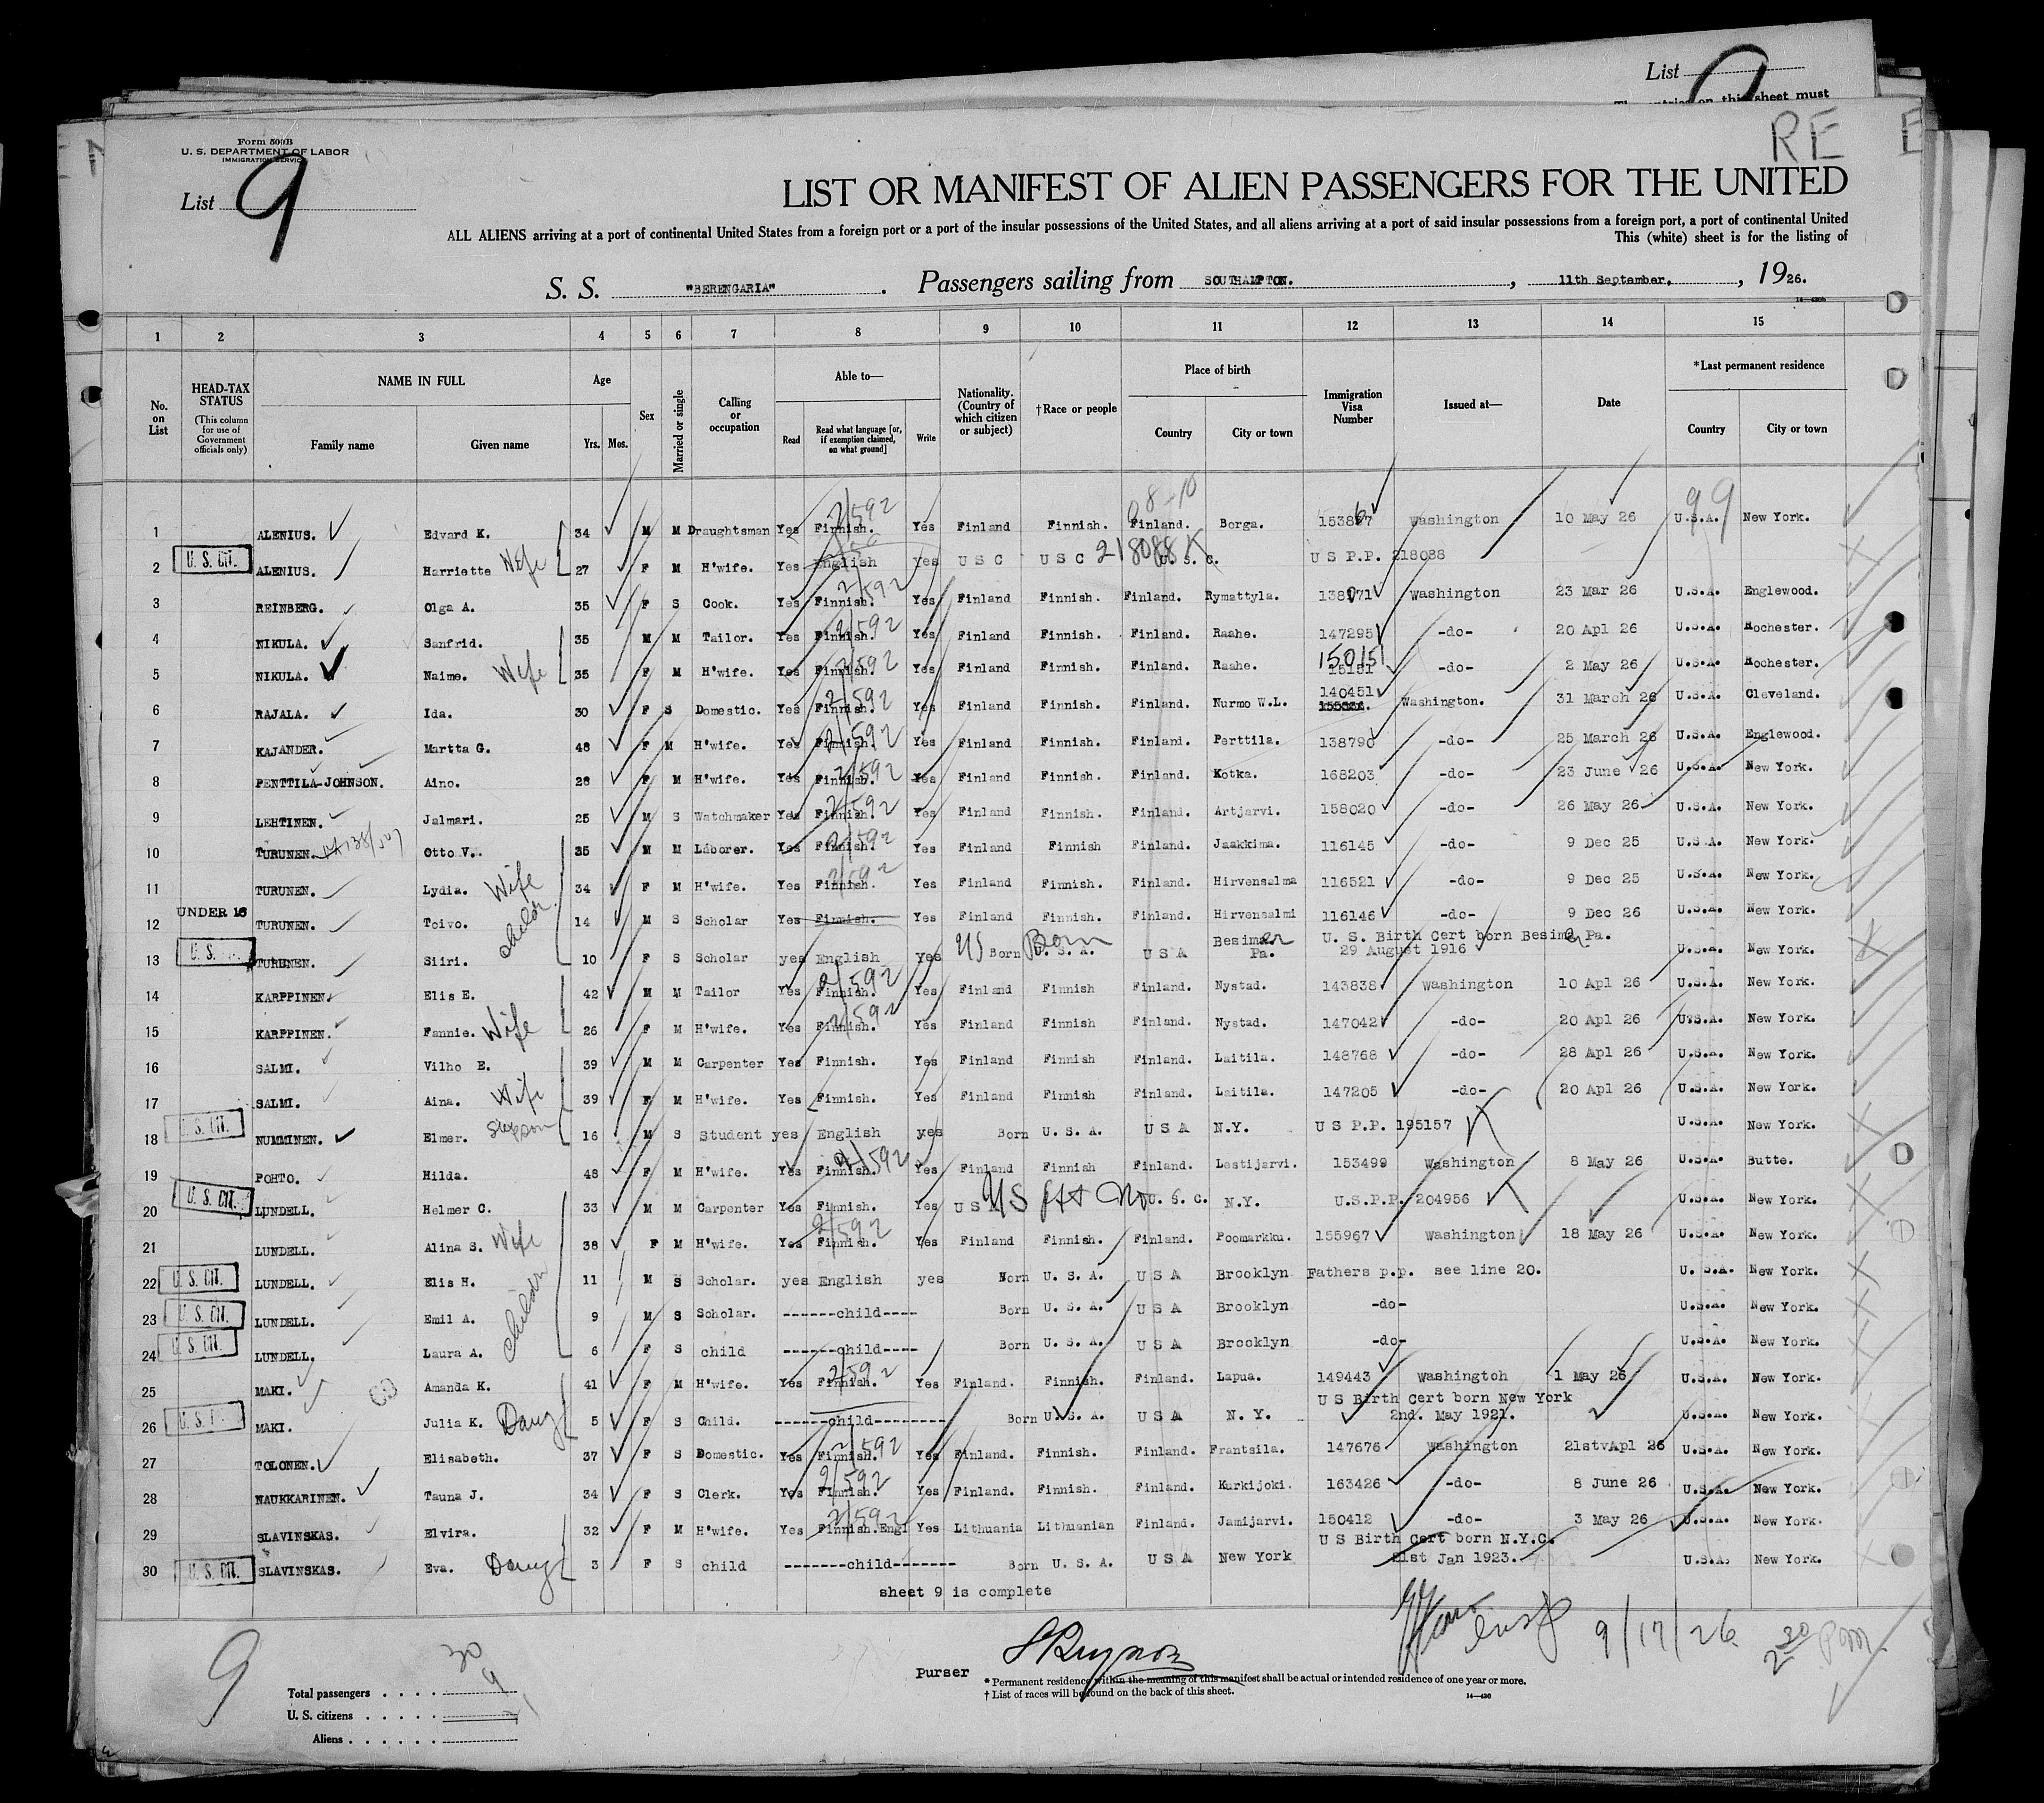 List
The entries on this sheet must
RE
Form 500B
U. S. DEPARTMENT OF LABOR
IMMIGRATION SERVICE
List 9
LIST OR MANIFEST OF ALIEN PASSENGERS FOR THE UNITED
ALL ALIENS arriving at a port of continental United States from a foreign port or a port of the insular possessions of the United States, and all aliens arriving at a port of said insular possessions from a foreign port, a port of continental United
This (white) sheet is for the listing of
S. S. "BERENGARIA". Passengers sailing from SOUTHAMPTON. , 11th September, , 1926.
1 2 3 4 5 6 7 8 9 10 11 12 13 14 15
No. on List
HEAD-TAX STATUS
(This column for use of Government officials only)
NAME IN FULL
Family name Given name
Age
Yrs. Mos.
Sex
Married or single
Calling or occupation
Able to—
Read
Read what language [or, if exemption claimed, on what ground]
Write
Nationality. (Country of which citizen or subject)
†Race or people
Place of birth
Country City or town
Immigration Visa Number
Issued at—
Date
*Last permanent residence
Country City or town
99
1 ALENIUS. Edvard K. 34 M M Draughtsman Yes Finnish. 2/592 Yes Finland Finnish. Finland. Borga. 153867 Washington 10 May 26 U.S.A. New York.
2 U. S. CIT. ALENIUS. Harriette Wife 27 F M H'wife. Yes English Yes U S C U S C 218088 U. S. C. U S P.P. 218088
3 REINBERG. Olga A. 35 F S Cook. Yes Finnish. 2/592 Yes Finland Finnish. Finland. Rymattyla. 138071 Washington 23 Mar 26 U.S.A. Englewood.
4 NIKULA. Sanfrid. 35 M M Tailor. Yes Finnish. 2/592 Yes Finland Finnish. Finland. Raahe. 147295 -do- 20 Apl 26 U.S.A. Rochester.
5 NIKULA. Naime. Wife 35 F M H'wife. Yes Finnish. 2/592 Yes Finland Finnish. Finland. Raahe. 150151 15151 -do- 2 May 26 U.S.A. Rochester.
6 RAJALA. Ida. 30 F S Domestic. Yes Finnish. 2/592 Yes Finland Finnish. Finland. Nurmo W.L. 140451 Washington. 31 March 26 U.S.A. Cleveland.
7 KAJANDER. Martta G. 48 F M H'wife. Yes Finnish. 2/592 Yes Finland Finnish. Finland. Perttila. 138790 -do- 25 March 26 U.S.A. Englewood.
8 PENTTILA-JOHNSON. Aino. 28 F M H'wife. Yes Finnish. 2/592 Yes Finland Finnish. Finland. Kotka. 168203 -do- 23 June 26 U.S.A. New York.
9 LEHTINEN. Jalmari. 25 M S Watchmaker Yes Finnish. 2/592 Yes Finland Finnish. Finland. Artjarvi. 158020 -do- 26 May 26 U.S.A. New York.
10 TURUNEN. Otto V. 35 M M Laborer. Yes Finnish. 2/592 Yes Finland Finnish Finland. Jaakkima. 116145 -do- 9 Dec 25 U.S.A. New York.
11 TURUNEN. Lydia. Wife 34 F M H'wife. Yes Finnish. 2/592 Yes Finland Finnish. Finland. Hirvensalma 116521 -do- 9 Dec 25 U.S.A. New York.
12 UNDER 16 TURUNEN. Toivo. Childr. 14 M S Scholar Yes Finnish. Yes Finland Finnish. Finland. Hirvensalmi 116146 -do- 9 Dec 26 U.S.A. New York.
13 U. S. TURUNEN. Siiri. 10 F S Scholar yes English yes US Born Born U. S. A. U S A Besimer Pa. U. S. Birth Cert born Besimer Pa. 29 August 1916 U.S.A. New York.
14 KARPPINEN. Elis E. 42 M M Tailor Yes Finnish. 2/592 Yes Finland Finnish Finland. Nystad. 143838 Washington 10 Apl 26 U.S.A. New York.
15 KARPPINEN. Fannie. Wife 26 F M H'wife. Yes Finnish. 2/592 Yes Finland Finnish Finland. Nystad. 147042 -do- 20 Apl 26 U.S.A. New York.
16 SALMI. Vilho E. 39 M M Carpenter Yes Finnish. Yes Finland Finnish Finland. Laitila. 148768 -do- 28 Apl 26 U.S.A. New York.
17 SALMI. Aina. Wife 39 F M H'wife. Yes Finnish. Yes Finland Finnish Finland. Laitila. 147205 -do- 20 Apl 26 U.S.A. New York.
18 U. S. CIT. NUMMINEN. Elmer. Stepson 16 M S Student yes English yes Born U. S. A. U S A N.Y. U S P.P. 195157 U.S.A. New York.
19 POHTO. Hilda. 48 F M H'wife. Yes Finnish. 2/592 Yes Finland Finnish Finland. Lestijarvi. 153499 Washington 8 May 26 U.S.A. Butte.
20 U. S. CIT. LUNDELL. Helmer C. 33 M M Carpenter Yes Finnish. Yes U S US U. S. C. N.Y. U.S.P.P. 204956 U.S.A. New York.
21 LUNDELL. Alina S. Wife 38 F M H'wife. Yes Finnish. 2/592 Yes Finland Finnish. Finland. Poomarkku. 155967 Washington 18 May 26 U.S.A. New York.
22 U. S. CIT. LUNDELL. Elis H. Children 11 M S Scholar. yes English yes Born U. S. A. U S A Brooklyn Fathers p.p. see line 20. U. S.A. New York.
23 U. S. CIT. LUNDELL. Emil A. 9 M S Scholar. ------child---- Born U. S. A. U S A Brooklyn -do- U.S.A. New York.
24 U. S. CIT. LUNDELL. Laura A. 6 F S child ------child---- Born U. S. A. U S A Brooklyn -do- U.S.A. New York.
25 MAKI. Amanda K. 41 F M H'wife. Yes Finnish. 2/592 Yes Finland. Finnish. Finland. Lapua. 149443 Washingtoh 1 May 26 U.S.A. New York.
26 U. S. MAKI. Julia K. Daug 5 F S Child. ------child-------- Born U.S. A. U S A N. Y. U S Birth Cert born New York 2nd. May 1921. U.S.A. New York.
27 TOLONEN. Elisabeth. 37 F S Domestic. Yes Finnish. 2/592 Yes Finland. Finnish. Finland. Frantsila. 147676 Washington 21stvApl 26 U.S.A. New York.
28 NAUKKARINEN. Tauna J. 34 F S Clerk. Yes Finnish. 2/592 Yes Finland. Finnish. Finland. Kurkijoki. 163426 -do- 8 June 26 U.S.A. New York.
29 SLAVINSKAS. Elvira. 32 F M H'wife. Yes Finnish.Engl 2/592 Yes Lithuania Lithuanian Finland. Jamijarvi. 150412 -do- 3 May 26 U.S.A. New York.
30 U. S. CIT. SLAVINSKAS. Eva. Daug 3 F S child -------child------- Born U. S. A. U S A New York U S Birth Cert born N.Y.C. 21st Jan 1923. U.S.A. New York.
sheet 9 is complete
9/17/26 2 30 pm.
9
Purser
* Permanent residence within the meaning of this manifest shall be actual or intended residence of one year or more.
† List of races will be found on the back of this sheet.
Total passengers . . . . 30
U. S. citizens . . . . . 9
Aliens . . . . . . 21